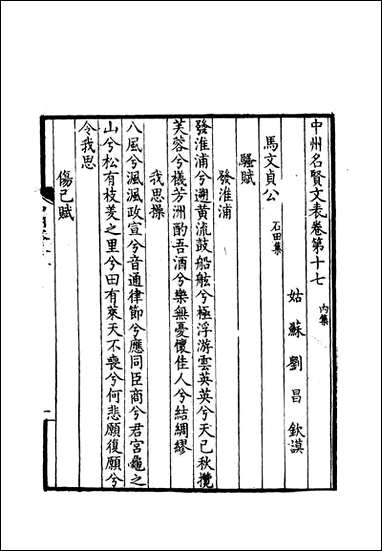 中州名賢文表卷第十七 內集
姑蘇劉昌欽謨
馬文貞公 石田集
騷賦
發淮浦
發淮浦兮遡黄流鼓船舷兮極浮游雲英英兮天已秋攬
芙蓉兮樣芳洲酌吾酒兮樂無憂懷佳人兮結綢繆
我思操
八風兮渢渢政宣兮音通律節兮應同臣商兮君宮龜之
山兮松有枝茭之里兮田有萊天不喪兮何悲願復願兮
令我思
傷己賦
一